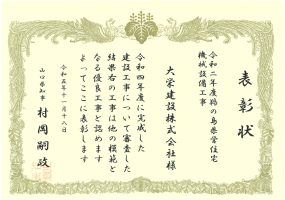 表彰状
令和二年度鶴の島県営住宅
機械設備工事
大栄建設株式会社様
令和四年度に完成した
建設工事について審査した
結果右の工事は他の模範と
なる優良工事と認めます
よってここに表彰します
令和五年十一月十八日
山口県知事 村岡嗣政